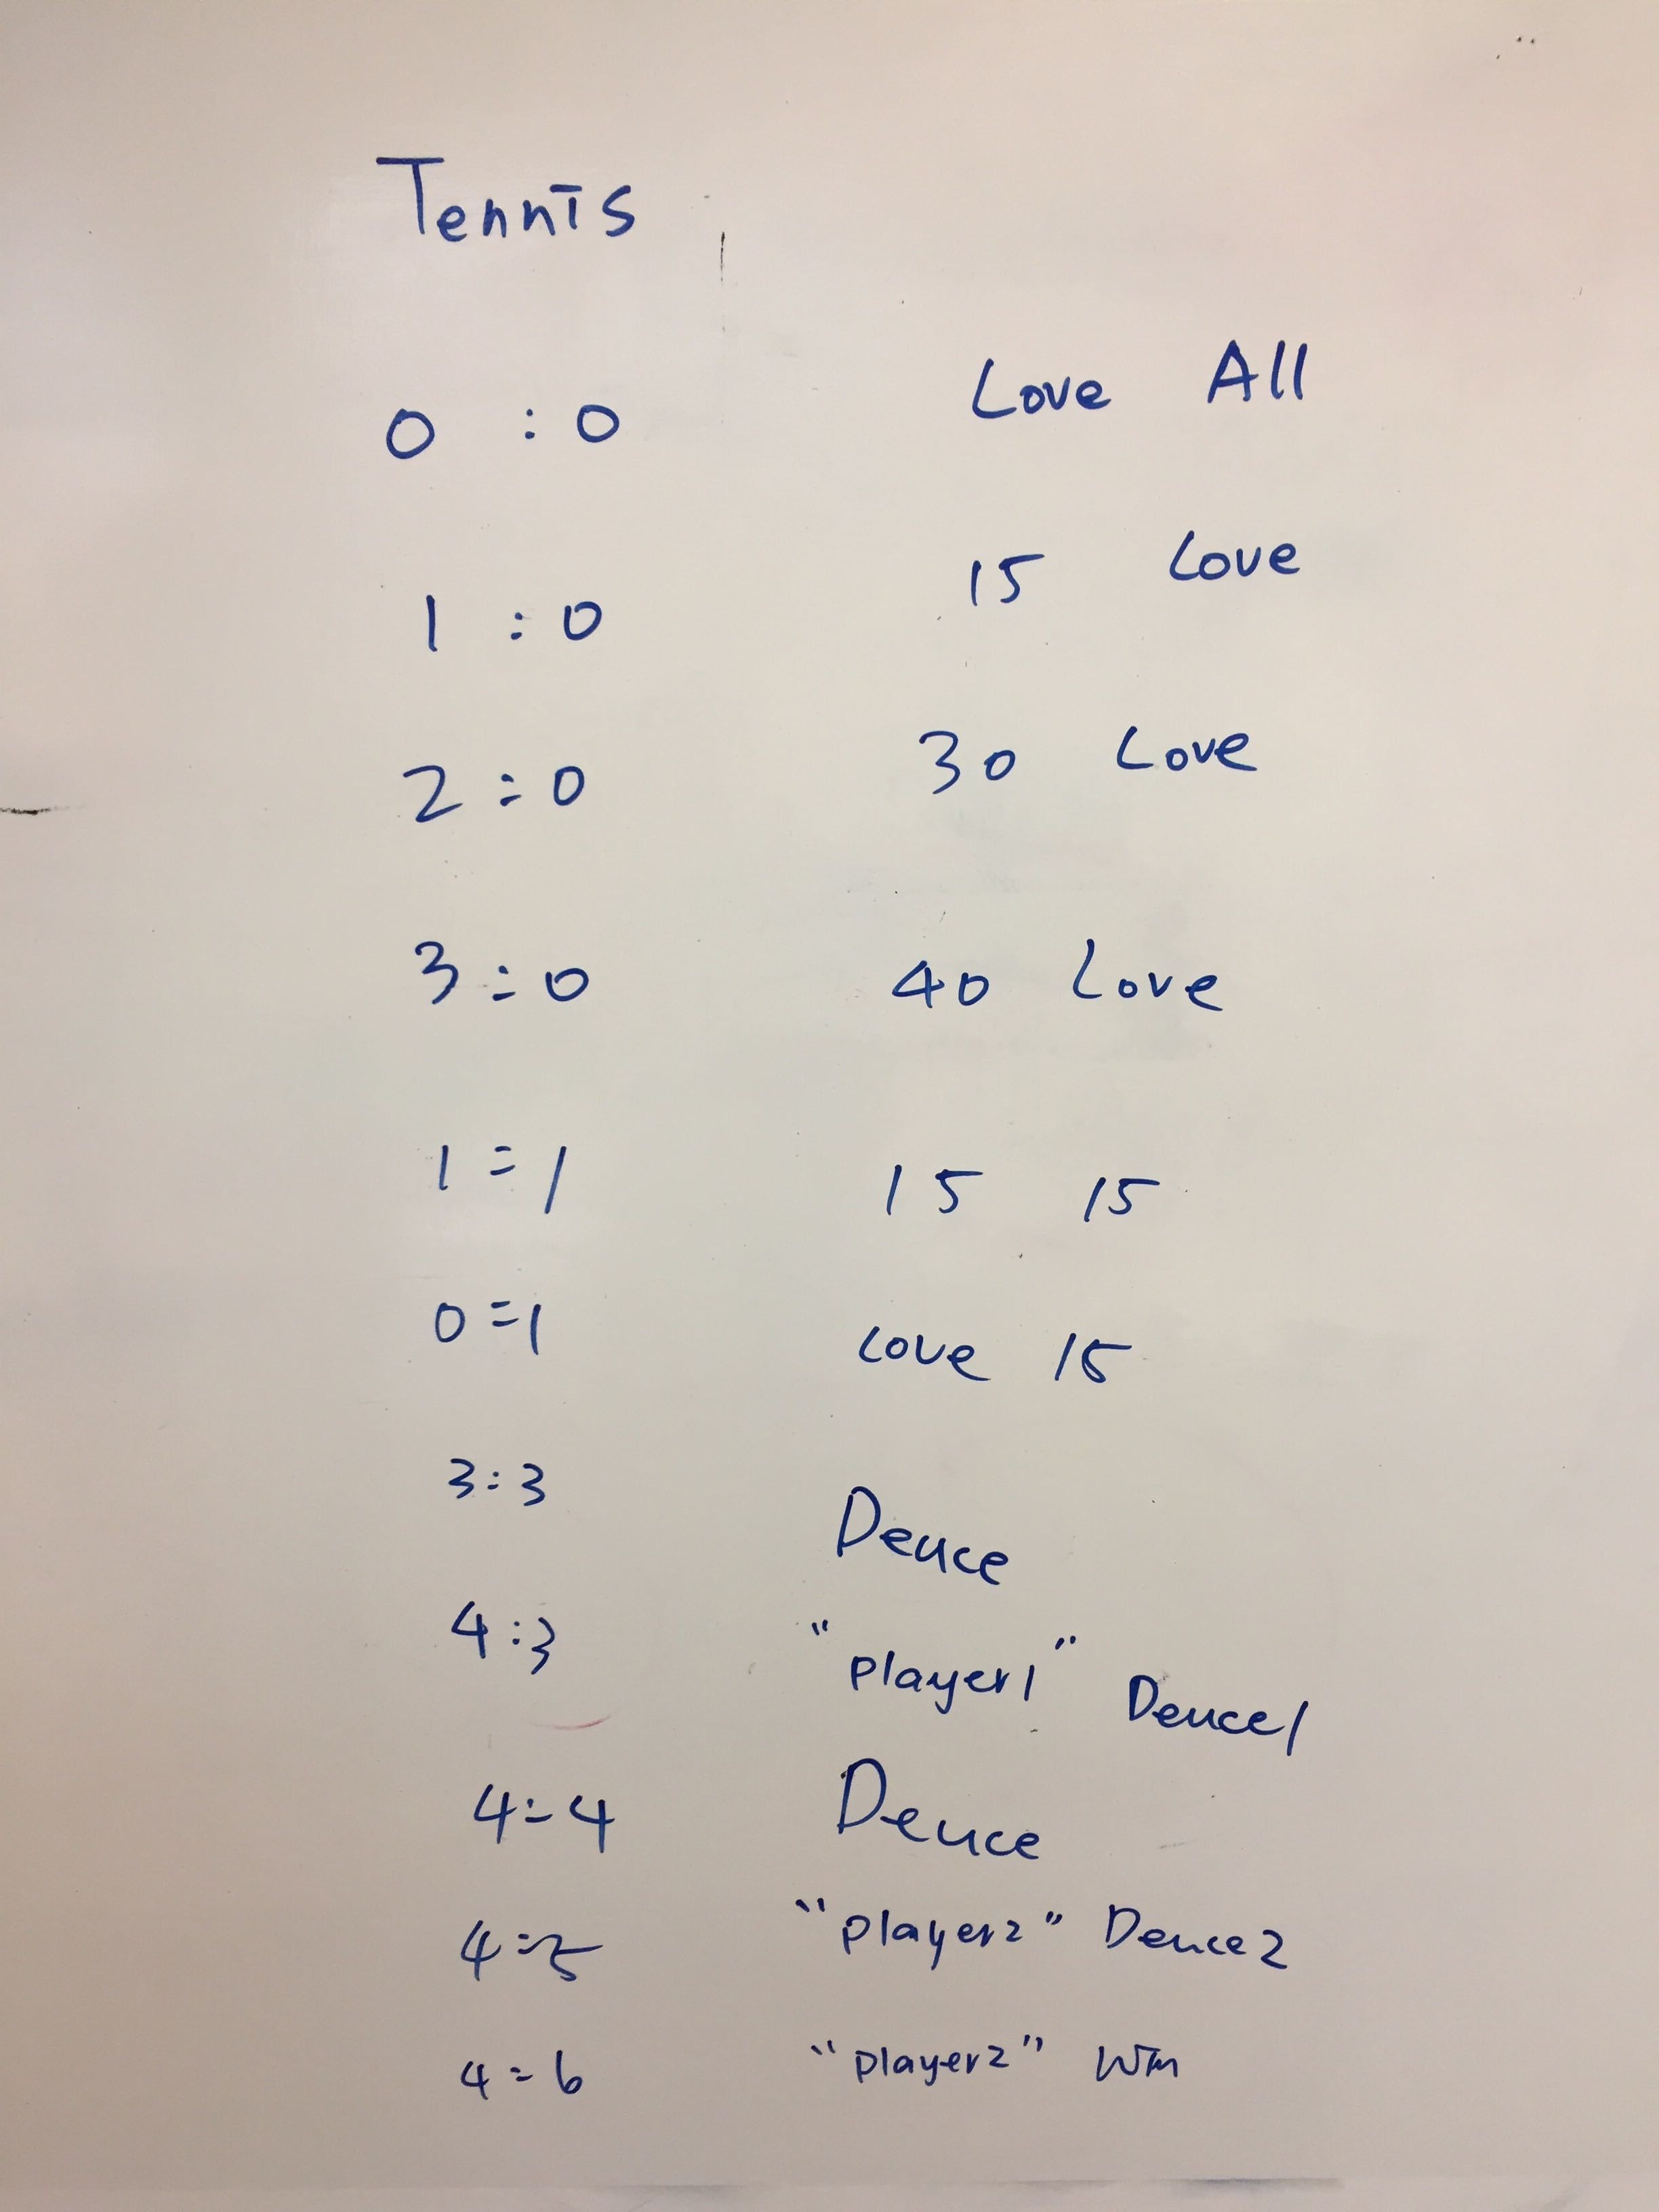 Tennis
0 : 0 Love All
1 : 0 15 Love
2 : 0 30 Love
3 : 0 40 Love
1 : 1 15 15
0 : 1 Love 15
3 : 3 Deuce
4 : 3 "player1" Deuce1
4 : 4 Deuce
4 : 5 "player2" Deuce2
4 : 6 "player2" Win